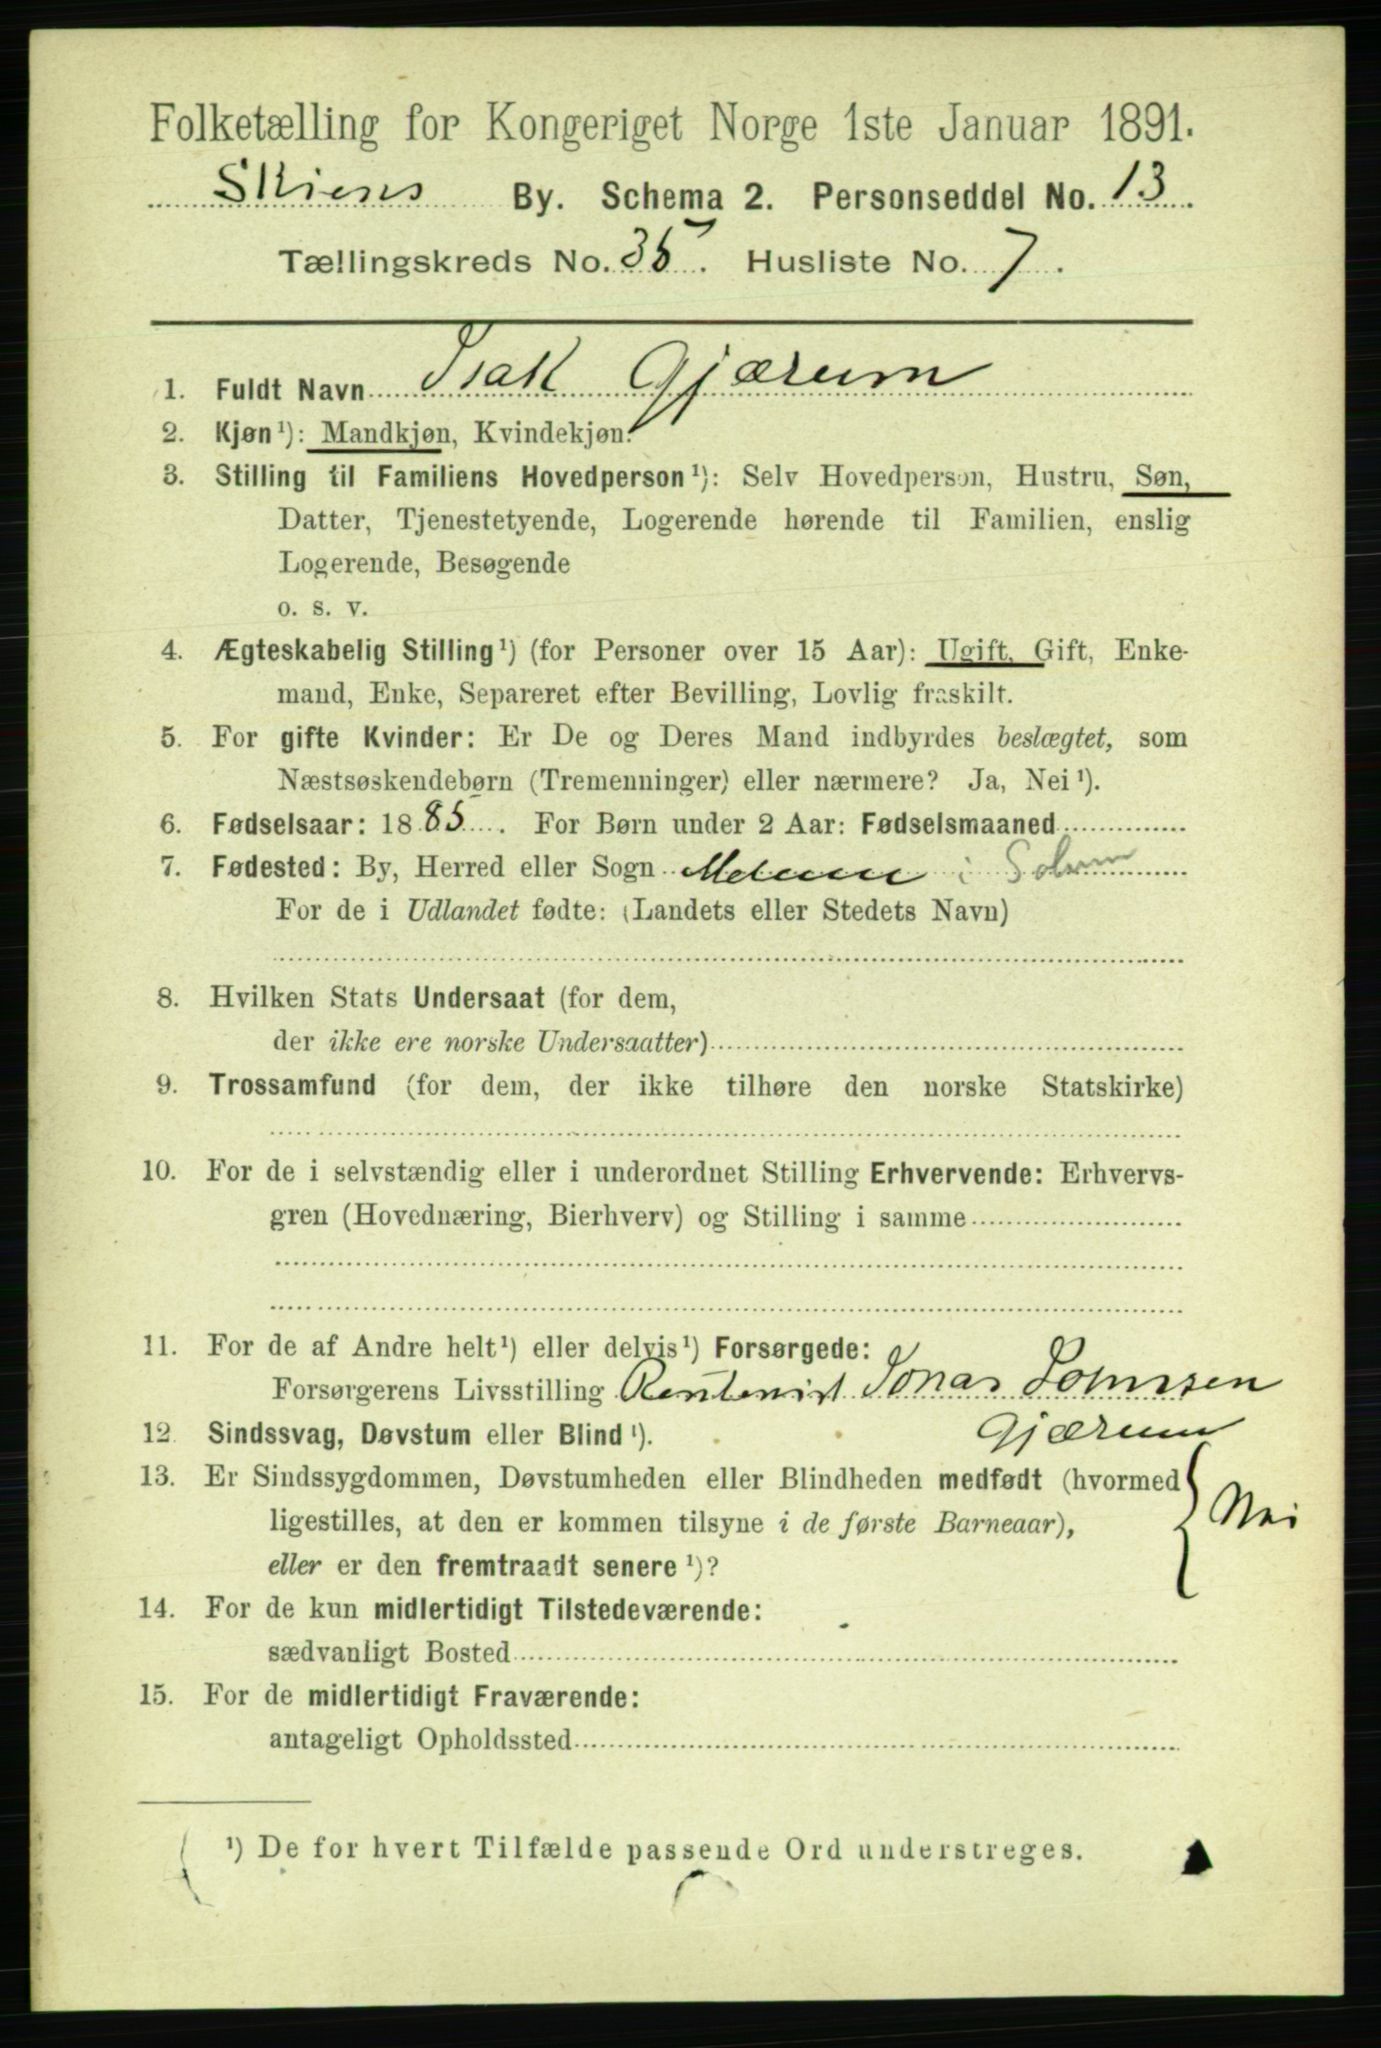 Folketælling for Kongeriget Norge 1ste Januar 1891.
Skiens By. Schema 2. Personseddel No. 13.
Tællingskreds No. 35. Husliste No. 7.
1. Fuldt Navn Isak Gjærum
2. Kjøn¹): Mandkjøn, Kvindekjøn.
3. Stilling til Familiens Hovedperson¹): Selv Hovedperson, Hustru, Søn,
Datter, Tjenestetyende, Logerende hørende til Familien, enslig
Logerende, Besøgende
o. s. v.
4. Ægteskabelig Stilling¹) (for Personer over 15 Aar): Ugift, Gift, Enke-
mand, Enke, Separeret efter Bevilling, Lovlig fraskilt.
5. For gifte Kvinder: Er De og Deres Mand indbyrdes beslægtet, som
Næstsøskendebørn (Tremenninger) eller nærmere? Ja, Nei¹).
6. Fødselsaar: 1885. For Børn under 2 Aar: Fødselsmaaned
7. Fødested: By, Herred eller Sogn Melum i Solum
For de i Udlandet fødte: (Landets eller Stedets Navn)
8. Hvilken Stats Undersaat (for dem,
der ikke ere norske Undersaatter)
9. Trossamfund (for dem, der ikke tilhøre den norske Statskirke)
10. For de i selvstændig eller i underordnet Stilling Erhvervende: Erhvervs-
gren (Hovednæring, Bierhverv) og Stilling i samme
11. For de af Andre helt¹) eller delvis¹) Forsørgede:
Forsørgerens Livsstilling Rentenist Jonas Johnsen
Gjærum
12. Sindssvag, Døvstum eller Blind¹).
13. Er Sindssygdommen, Døvstumheden eller Blindheden medfødt (hvormed
ligestilles, at den er kommen tilsyne i de første Barneaar), Nei
eller er den fremtraadt senere¹)?
14. For de kun midlertidigt Tilstedeværende:
sædvanligt Bosted
15. For de midlertidigt Fraværende:
antageligt Opholdssted
¹) De for hvert Tilfælde passende Ord understreges.